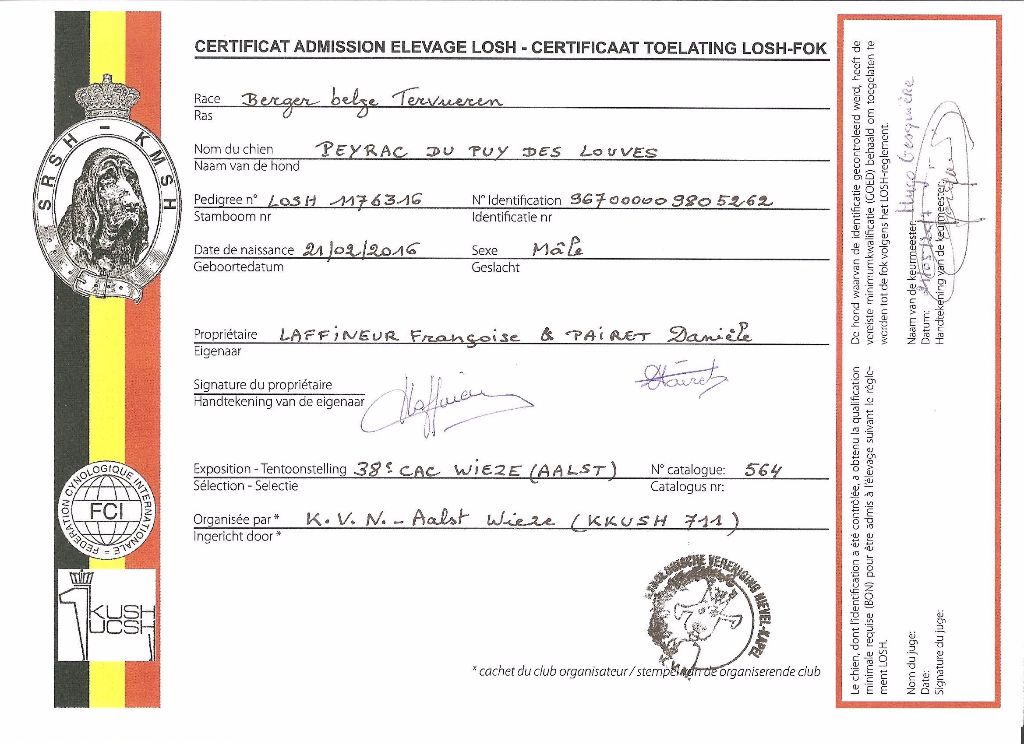 CERTIFICAT ADMISSION ELEVAGE LOSH - CERTIFICAAT TOELATING LOSH-FOK
SRSH - KMSH
Race Berger belge Tervueren
Ras
Nom du chien PEYRAC DU PUY DES LOUVES
Naam van de hond
Pedigree n° LOSH 1176316 N° Identification 967000009805262
Stamboom nr Identificatie nr
Date de naissance 21/02/2016 Sexe Mâle
Geboortedatum Geslacht
Propriétaire LAFFINEUR Françoise & PAIRET Danièle
Eigenaar
Signature du propriétaire
Handtekening van de eigenaar
Exposition - Tentoonstelling 38e CAC WIEZE (AALST) N° catalogue: 564
Sélection - Selectie Catalogus nr:
Organisée par * K.V.N. - Aalst Wieze (KKUSH 711)
Ingericht door *
FEDERATION CYNOLOGIQUE INTERNATIONALE
FCI
KUSH
UCSH
VERENIGING NEVEL-KAPEL
* cachet du club organisateur / stempel van de organiserende club
De hond waarvan de identificatie gecontroleerd werd, heeft de
vereiste minimumkwalificatie (GOED) behaald om toegelaten te
worden tot de fok volgens het LOSH-reglement.
Naam van de keurmeester:
Datum:
Handtekening van de keurmeester:
Le chien, dont l'identification a été contrôlée, a obtenu la qualification
minimale requise (BON) pour être admis à l'élevage suivant le règle-
ment LOSH.
Nom du juge:
Date:
Signature du juge: